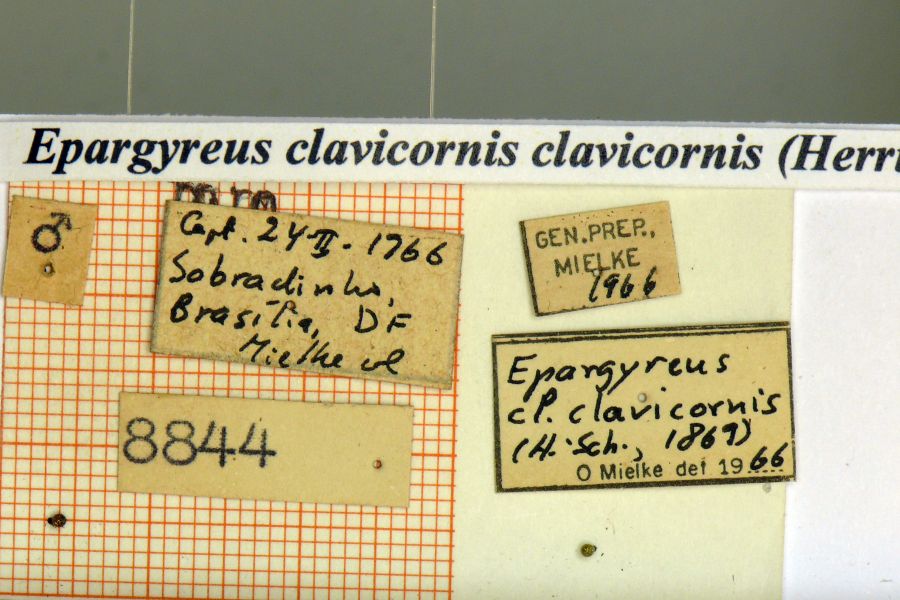 Epargyreus clavicornis clavicornis (Herri
mm
♂
Capt. 24-II-1966
Sobradinho,
Brasília, DF
Mielke col
8844
GEN.PREP.,
MIELKE
1966
Epargyreus
cl. clavicornis
(H.-Sch., 1869)
O Mielke det 1966